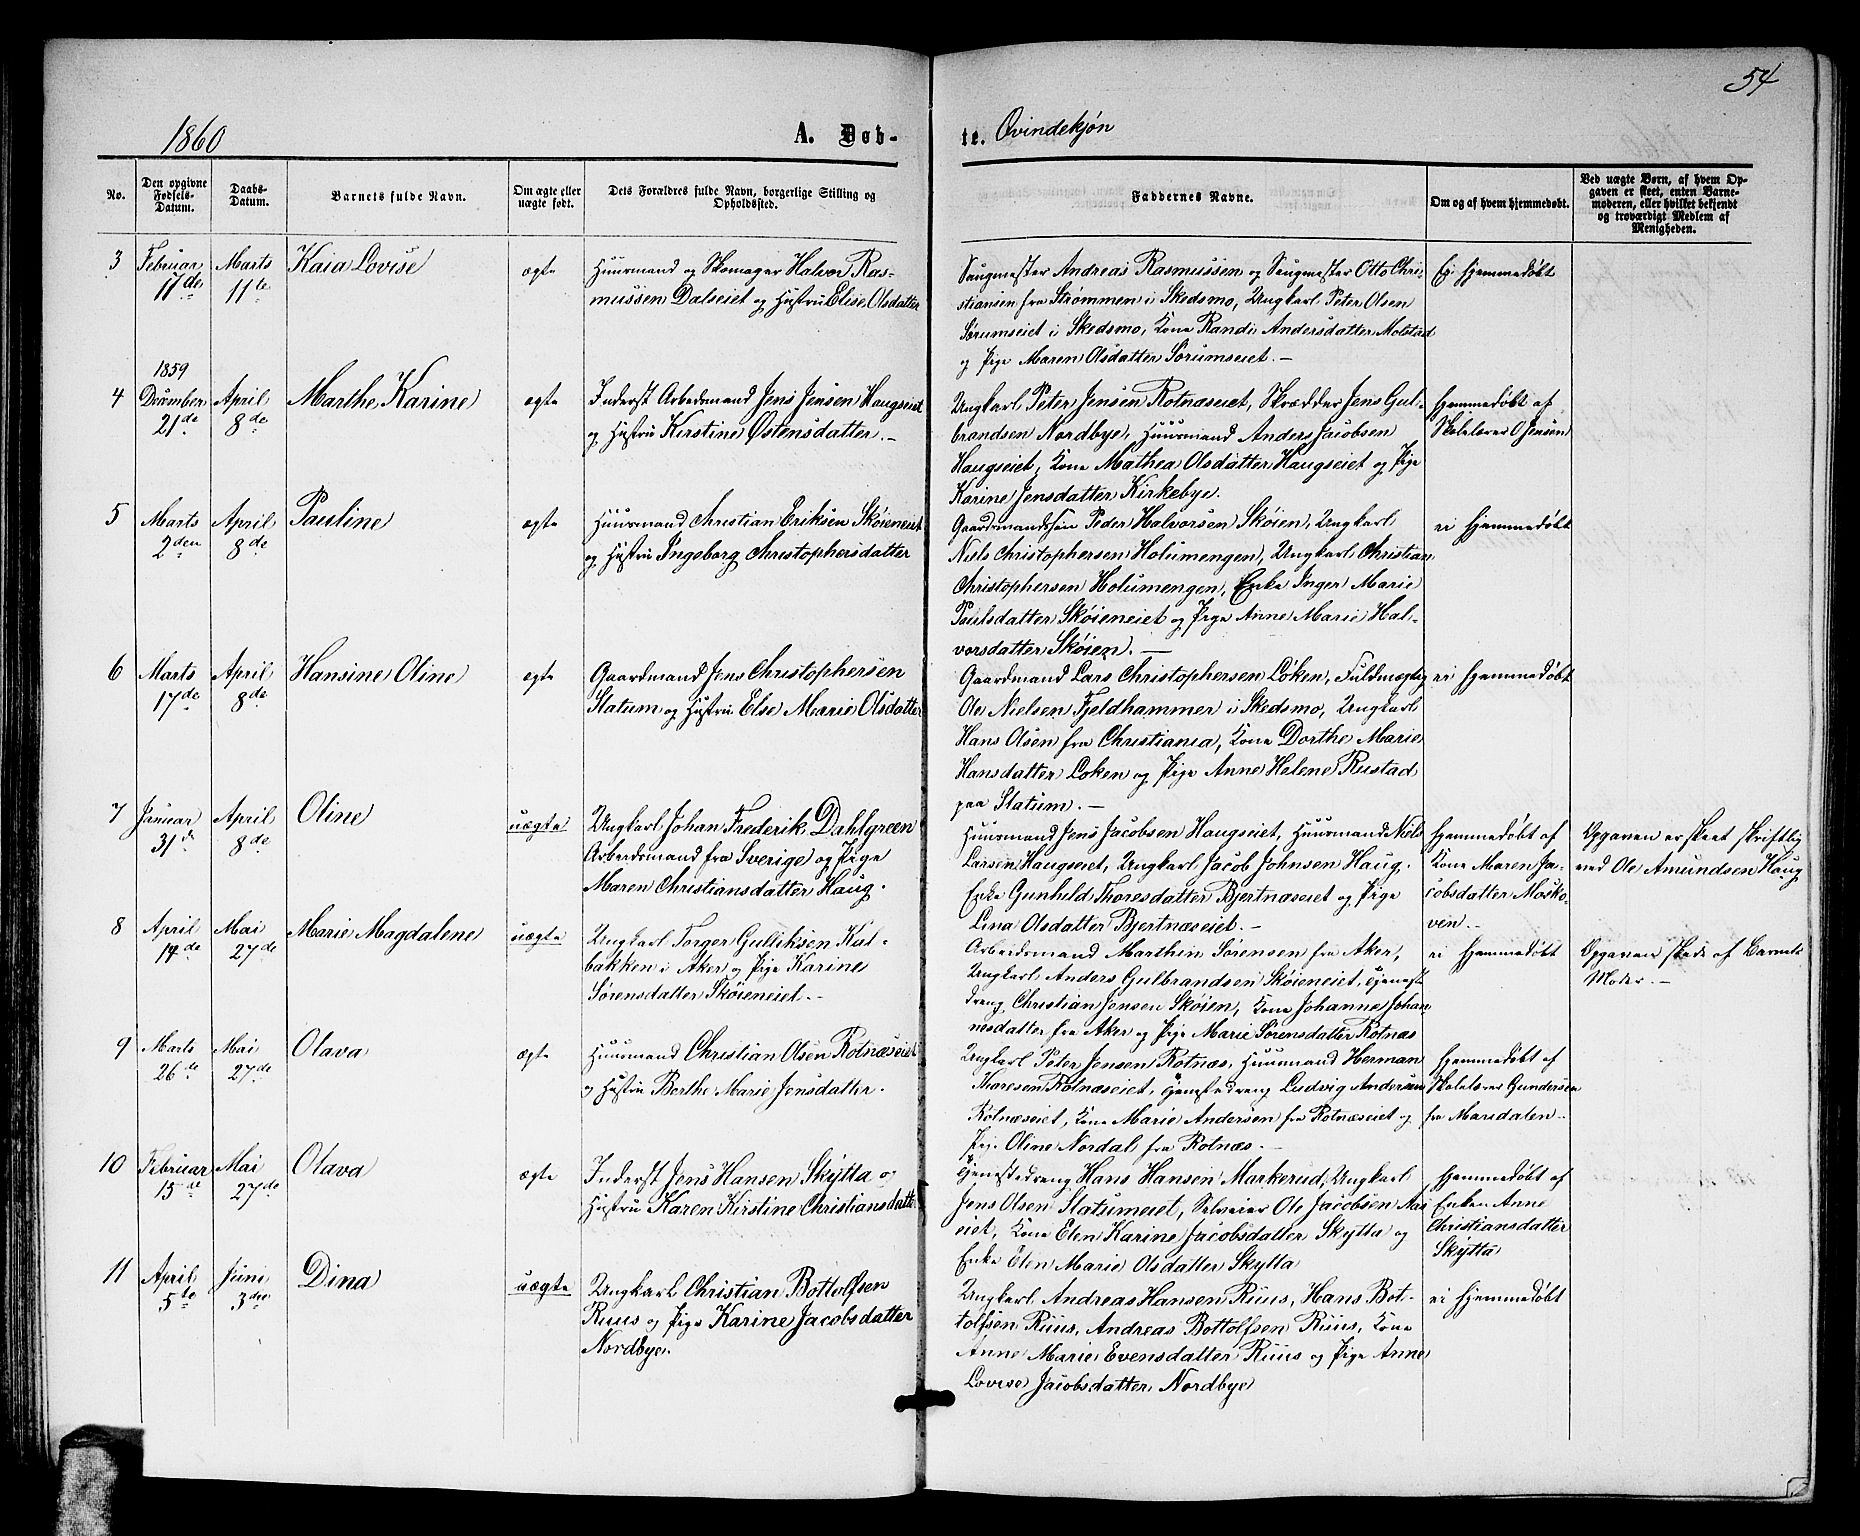 54
1860
A. Døb-
te. Qvindekjøn
No.
Den opgivne Fødsels-Datum.
Daabs-Datum.
Barnets fulde Navn.
Om ægte eller uægte født.
Dets Forældres fulde Navn, borgerlige Stilling og Opholdssted.
Faddernes Navne.
Om og af hvem hjemmedøbt.
Ved uægte Børn, af hvem Opgaven er skeet, enten Barnemoderen, eller hvilket bekjendt og troværdigt Medlem af Menigheden.
3
Februar
17de
Marts
11te
Kaia Lovise
ægte
Huusmand og Skomager Halvor Ras-
mussen Dalseiet og Hustru Elise Olsdatter
Saugmester Andreas Rasmussen og Saugmester Otto Chri-
stiansen fra Strømmen i Skedsmo, Ungkarl Peter Olsen
Sørumseiet i Skedsmo, Kone Randi Andersdatter Molstad
og Pige Maren Olsdatter Sørumseiet. —
Ei hjemmedøbt
4
1859
December
21de
April
8de
Marthe Karine
ægte
Inderst Arbeidsmand Jens Jensen Haugseiet
og Hustru Kirstine Østensdatter. —
Ungkarl Peter Jensen Rotnæseiet, Skrædder Jens Gul-
brandsen Nordbye, Huusmand Anders Jacobsen
Haugseiet, Kone Mathea Olsdatter Haugseiet og Pige
Karine Jensdatter Kirkebye.
Hjemmedøbt af
Skolelærer O Jensen
5
Marts
2den
April
8de
Pauline
ægte
Huusmand Christian Eriksen Skøieneiet
og Hustru Ingeborg Christophersdatter
Gaardmandssøn Peder Halvorsen Skøien, Ungkarl
Niels Christophersen Holumengen, Ungkarl Christian
Christophersen Holumengen, Enke Inger Marie
Poulsdatter Skøieneiet og Pige Anne Marie Hal-
vorsdatter Skøien. —
ei hjemmedøbt
6
Marts
17de
April
8de
Hansine Oline
ægte
Gaardmand Jens Christophersen
Slatum og Hustru Else Marie Olsdatter
Gaardmand Lars Christophersen Løken, Fuldmægtig
Ole Nielsen Fjeldhammer i Skedsmo, Ungkarl
Hans Olsen fra Christiania, Kone Dorthe Marie
Hansdatter Løken og Pige Anne Helene Rustad
paa Slatum. —
ei hjemmedøbt
7
Januar
31de
April
8de
Oline
uægte
Ungkarl Johan Frederik Dahlgreen
Arbeidsmand fra Sverige og Pige
Maren Christiansdatter Haug.
Huusmand Jens Jacobsen Haugseiet, Huusmand Niels
Larsen Haugseiet, Ungkarl Jacob Johnsen Haug.
Enke Gunhild Thoresdatter Bjertnæseiet og Pige
Lina Olsdatter Bjertnæseiet. —
Hjemmedøbt af
Kone Maren Ja-
cobsdatter Mosko-
ven. —
Opgaven er skeet skriftlig
ved Ole Amundsen Haug
8
April
14de
Mai
27de
Marie Magdalene
uægte
Ungkarl Torger Gulliksen Kal-
bakken i Aker og Pige Karine
Sørensdatter Skøieneiet. —
Arbeidsmand Marthin Sørensen fra Aker,
Ungkarl Anders Gulbrandsen Skøieneiet, Tjeneste
dreng Christian Jensen Skøien, Kone Johanne Johan
nesdatter fra Aker og Pige Marie Sørensdatter Rotnæs
ei hjemmedøbt
Opgaven skede af Barnets
Moder. —
9
Marts
26de
Mai
27de
Olava
ægte
Huusmand Christian Olsen Rotnæseiet
og Hustru Berthe Marie Jensdatter.
Ungkarl Peter Jensen Rotnæs, Huusmand Herman
Thoresen Rotnæseiet, Tjenestedreng Ludvig Andersen
Rotnæseiet, Kone Marie Andersen fra Rotnæseiet og
Pige Oline Nordal fra Rotnæs. —
Hjemmedøbt af
Skolelærer Gundersen
fra Maridalen. —
10
Februar
15de
Mai
27de
Olava
ægte
Inderst Jens Hansen Skytta og
Hustru Karen Kirstine Christiansdatt
Tjenestedreng Hans Hansen Markerud, Ungkarl
Jens Olsen Slatumeiet, Selveier Ole Jacobsen Aas
eiet, Kone Elen Karine Jacobsdatter Skytta og
Enke Elen Marie Olsdatter Skytta
Hjemmedøbt af
Enken Anne
Christiansdatter
Skytta
11
April
5te
Juni
3die
Dina
uægte
Ungkarl Christian Bottolfsen
Ruus og Pige Karine Jacobsdatter
Nordbye.
Ungkarl Andreas Hansen Ruus, Hans Bot-
tolfsen Ruus, Andreas Bottolfsen Ruus, Kone
Anne Marie Evensdatter Ruus og Pige Anne
Lovise Jacobsdatter Nordbye
ei hjemmedøbt